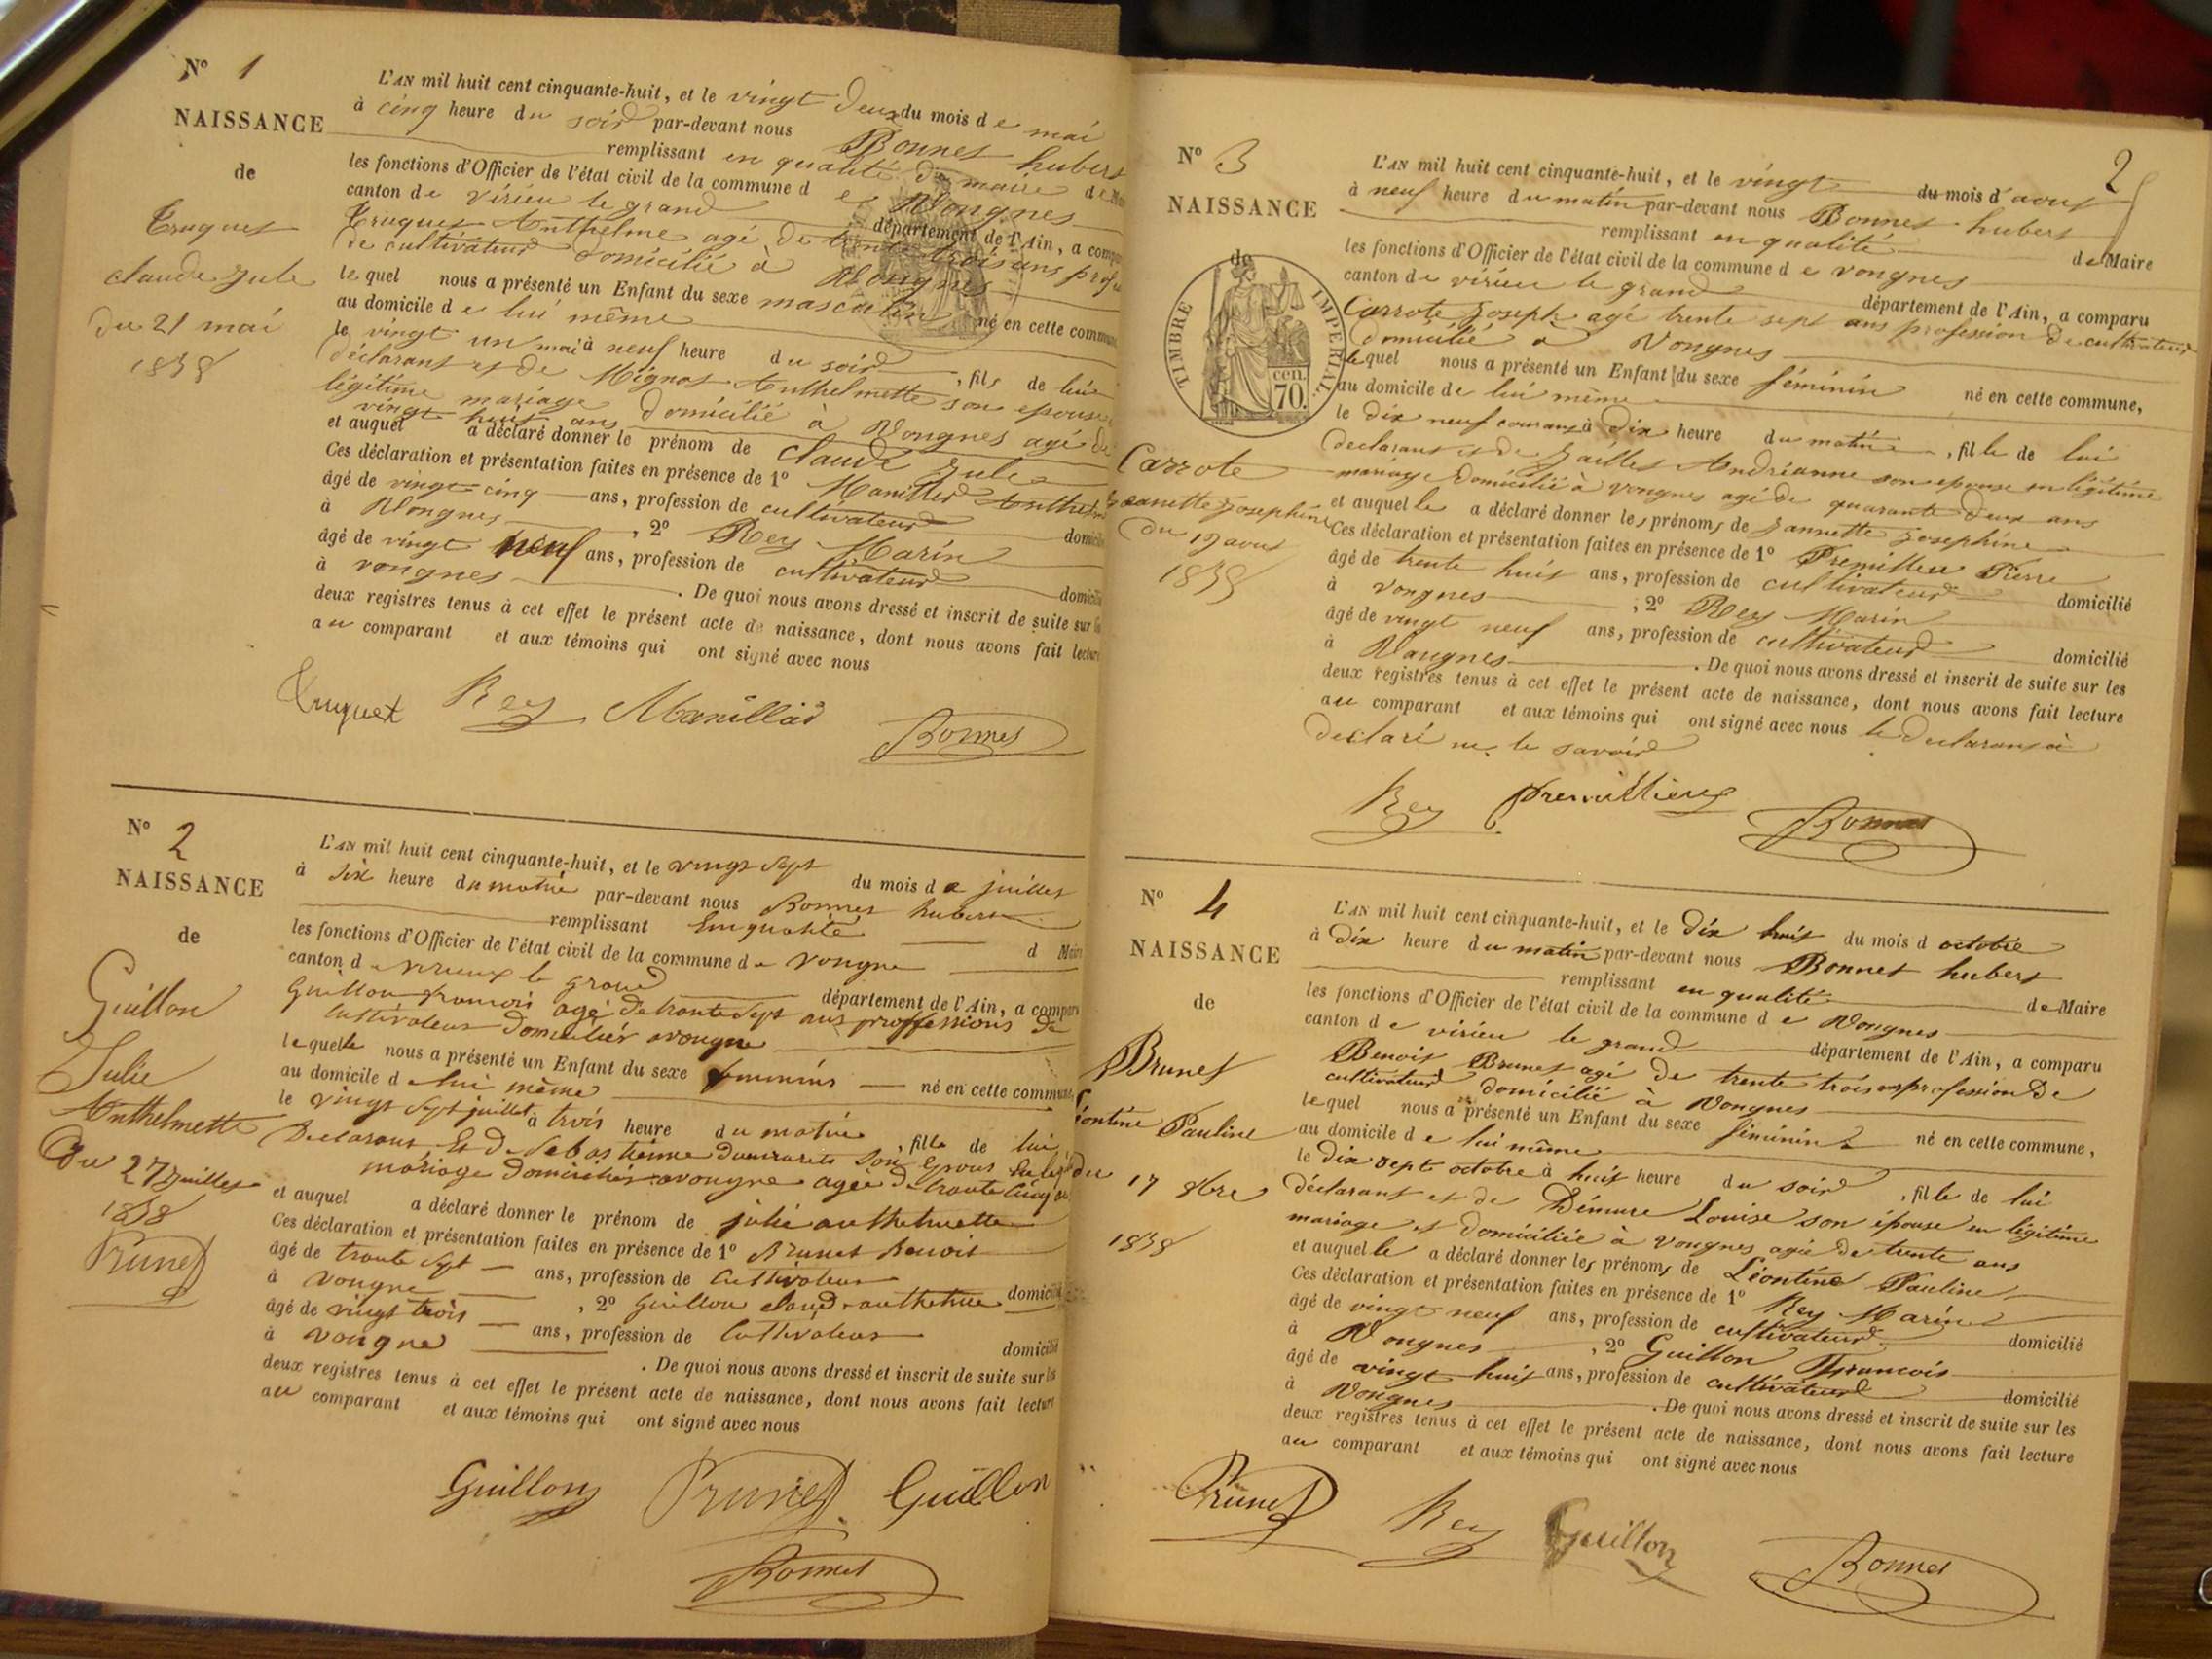 Nº 1
NAISSANCE
de
Truquet
claude Jule
du 21 mai
1858
L'AN mil huit cent cinquante-huit, et le vingt deux du mois de mai
à cinq heure du soir par-devant nous Bonnet hubert
remplissant en qualité de maire de
les fonctions d'Officier de l'état civil de la commune de Vongnes
canton de virieu le grand département de l'Ain, a comparu
Truquet Anthelme agé de trente trois ans prof
de cultivateur domicilié à Vongnes
lequel nous a présenté un Enfant du sexe masculin né en cette commune
au domicile de lui même
le vingt un mai à neuf heure du soir, fils de lui
déclarant et de Mignot Anthelmette son epouse
légitime mariage domicilié à Vongnes agé de
vingt huit ans
et auquel a déclaré donner le prénom de claude Jule
Ces déclaration et présentation faites en présence de 1º Manillier Anthelme
âgé de vingt cinq ans, profession de cultivateur domicilié
à Vongnes, 2º Rey Marin
âgé de vingt neuf ans, profession de cultivateur domicilié
à vongnes. De quoi nous avons dressé et inscrit de suite sur les
deux registres tenus à cet effet le présent acte de naissance, dont nous avons fait lecture
au comparant et aux témoins qui ont signé avec nous
Truquet Rey Manillier Bonnet
Nº 2
NAISSANCE
de
Guillon
Julie
Anthelmette
Du 27 Juillet
1858
Brunet
L'AN mil huit cent cinquante-huit, et le vingt Sept du mois de juillet
à Six heure du matin par-devant nous Bonnet hubert
remplissant En qualité d Maire
les fonctions d'Officier de l'état civil de la commune de vongne
canton de virieux le grand département de l'Ain, a comparu
Guillon francois agé de trante Sept ans proffessions de
Cultivateur Domicilier a vongne
lequelle nous a présenté un Enfant du sexe feminins né en cette commune
au domicile de lui même
le vingt Sept juillet à trois heure du matin, fille de lui
Declarant Et De Sebastienne son Epouse En legi
mariage Domicilier a vongne agee de trante cinq an
et auquel a déclaré donner le prénom de julie anthelmette
Ces déclaration et présentation faites en présence de 1º Brunet Benoit
âgé de trante Sept ans, profession de Cultivateur domicilié
à vongne, 2º Guillon claude anthelme
âgé de vingt trois ans, profession de Cultivateur domicilié
à vongne. De quoi nous avons dressé et inscrit de suite sur les
deux registres tenus à cet effet le présent acte de naissance, dont nous avons fait lecture
au comparant et aux témoins qui ont signé avec nous
Guillon Brunet Guillon
Bonnet
2
Nº 3
NAISSANCE
de
TIMBRE IMPERIAL
70 cen.
Carrote
Jeannette Josephine
du 19 aout
1858
L'AN mil huit cent cinquante-huit, et le vingt du mois d'aout
à neuf heure du matin par-devant nous Bonnet hubert
remplissant en qualité de Maire
les fonctions d'Officier de l'état civil de la commune de vongnes
canton de virieu le grand département de l'Ain, a comparu
Carrote Joseph agé trente sept ans profession de cultivateur
domicilié à Vongnes
lequel nous a présenté un Enfant du sexe féminin né en cette commune,
au domicile de lui même
le dix neuf courant à dix heure du matin, fille de lui
declarant et de Jailles Andrianne son epouse en légitime
mariage domicilié à vongnes agé de quarante deux ans
et auquelle a déclaré donner les prénoms de Jannette Josephine
Ces déclaration et présentation faites en présence de 1º Premillieu Pierre
âgé de trente huit ans, profession de cultivateur domicilié
à vongnes, 2º Rey Marin
âgé de vingt neuf ans, profession de cultivateur domicilié
à Vongnes. De quoi nous avons dressé et inscrit de suite sur les
deux registres tenus à cet effet le présent acte de naissance, dont nous avons fait lecture
au comparant et aux témoins qui ont signé avec nous le declarant à
declaré ne le savoir
Rey Premillieux Bonnet
Nº 4
NAISSANCE
de
Brunet
Léontine Pauline
du 17 8bre
1858
L'AN mil huit cent cinquante-huit, et le dix huit du mois d octobre
à dix heure du matin par-devant nous Bonnet hubert
remplissant en qualité de Maire
les fonctions d'Officier de l'état civil de la commune de Vongnes
canton de virieu le grand département de l'Ain, a comparu
Benoit Brunet agé de trente trois ans profession De
cultivateur domicilié à Vongnes
lequel nous a présenté un Enfant du sexe féminin né en cette commune,
au domicile de lui même
le dix sept octobre à huit heure du soir, fille de lui
déclarant et de Démure Louise son épouse en légitime
mariage et domiciliée à vongnes agée de trente ans
et auquelle a déclaré donner les prénoms de Léontine Pauline
Ces déclaration et présentation faites en présence de 1º Rey Marin
âgé de vingt neuf ans, profession de cultivateur domicilié
à Vongnes, 2º Guillon Francois
âgé de vingt huit ans, profession de cultivateur domicilié
à Vongnes. De quoi nous avons dressé et inscrit de suite sur les
deux registres tenus à cet effet le présent acte de naissance, dont nous avons fait lecture
au comparant et aux témoins qui ont signé avec nous
Brunet Rey Guillon Bonnet